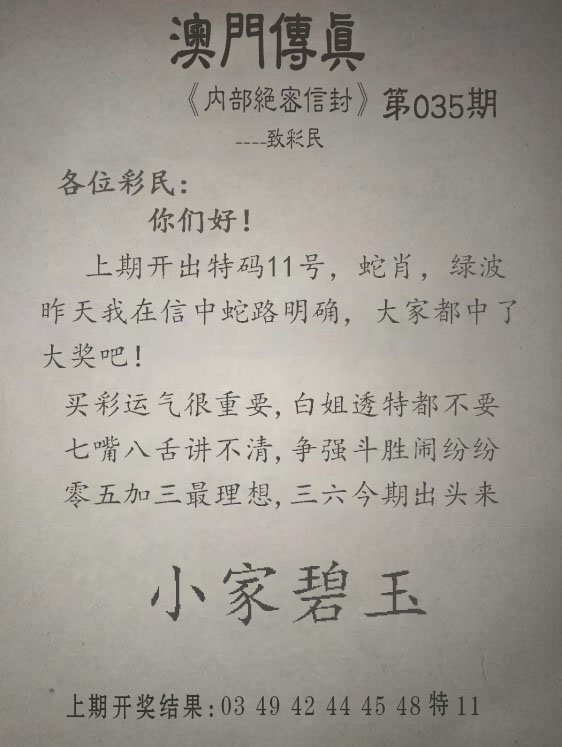 澳門傳眞
《内部絕密信封》第035期
----致彩民
各位彩民:
你们好!
上期开出特码11号，蛇肖，绿波
昨天我在信中蛇路明确，大家都中了
大奖吧!
买彩运气很重要,白姐透特都不要
七嘴八舌讲不清,争强斗胜闹纷纷
零五加三最理想,三六今期出头来
小家碧玉
上期开奖结果:03 49 42 44 45 48 特 11